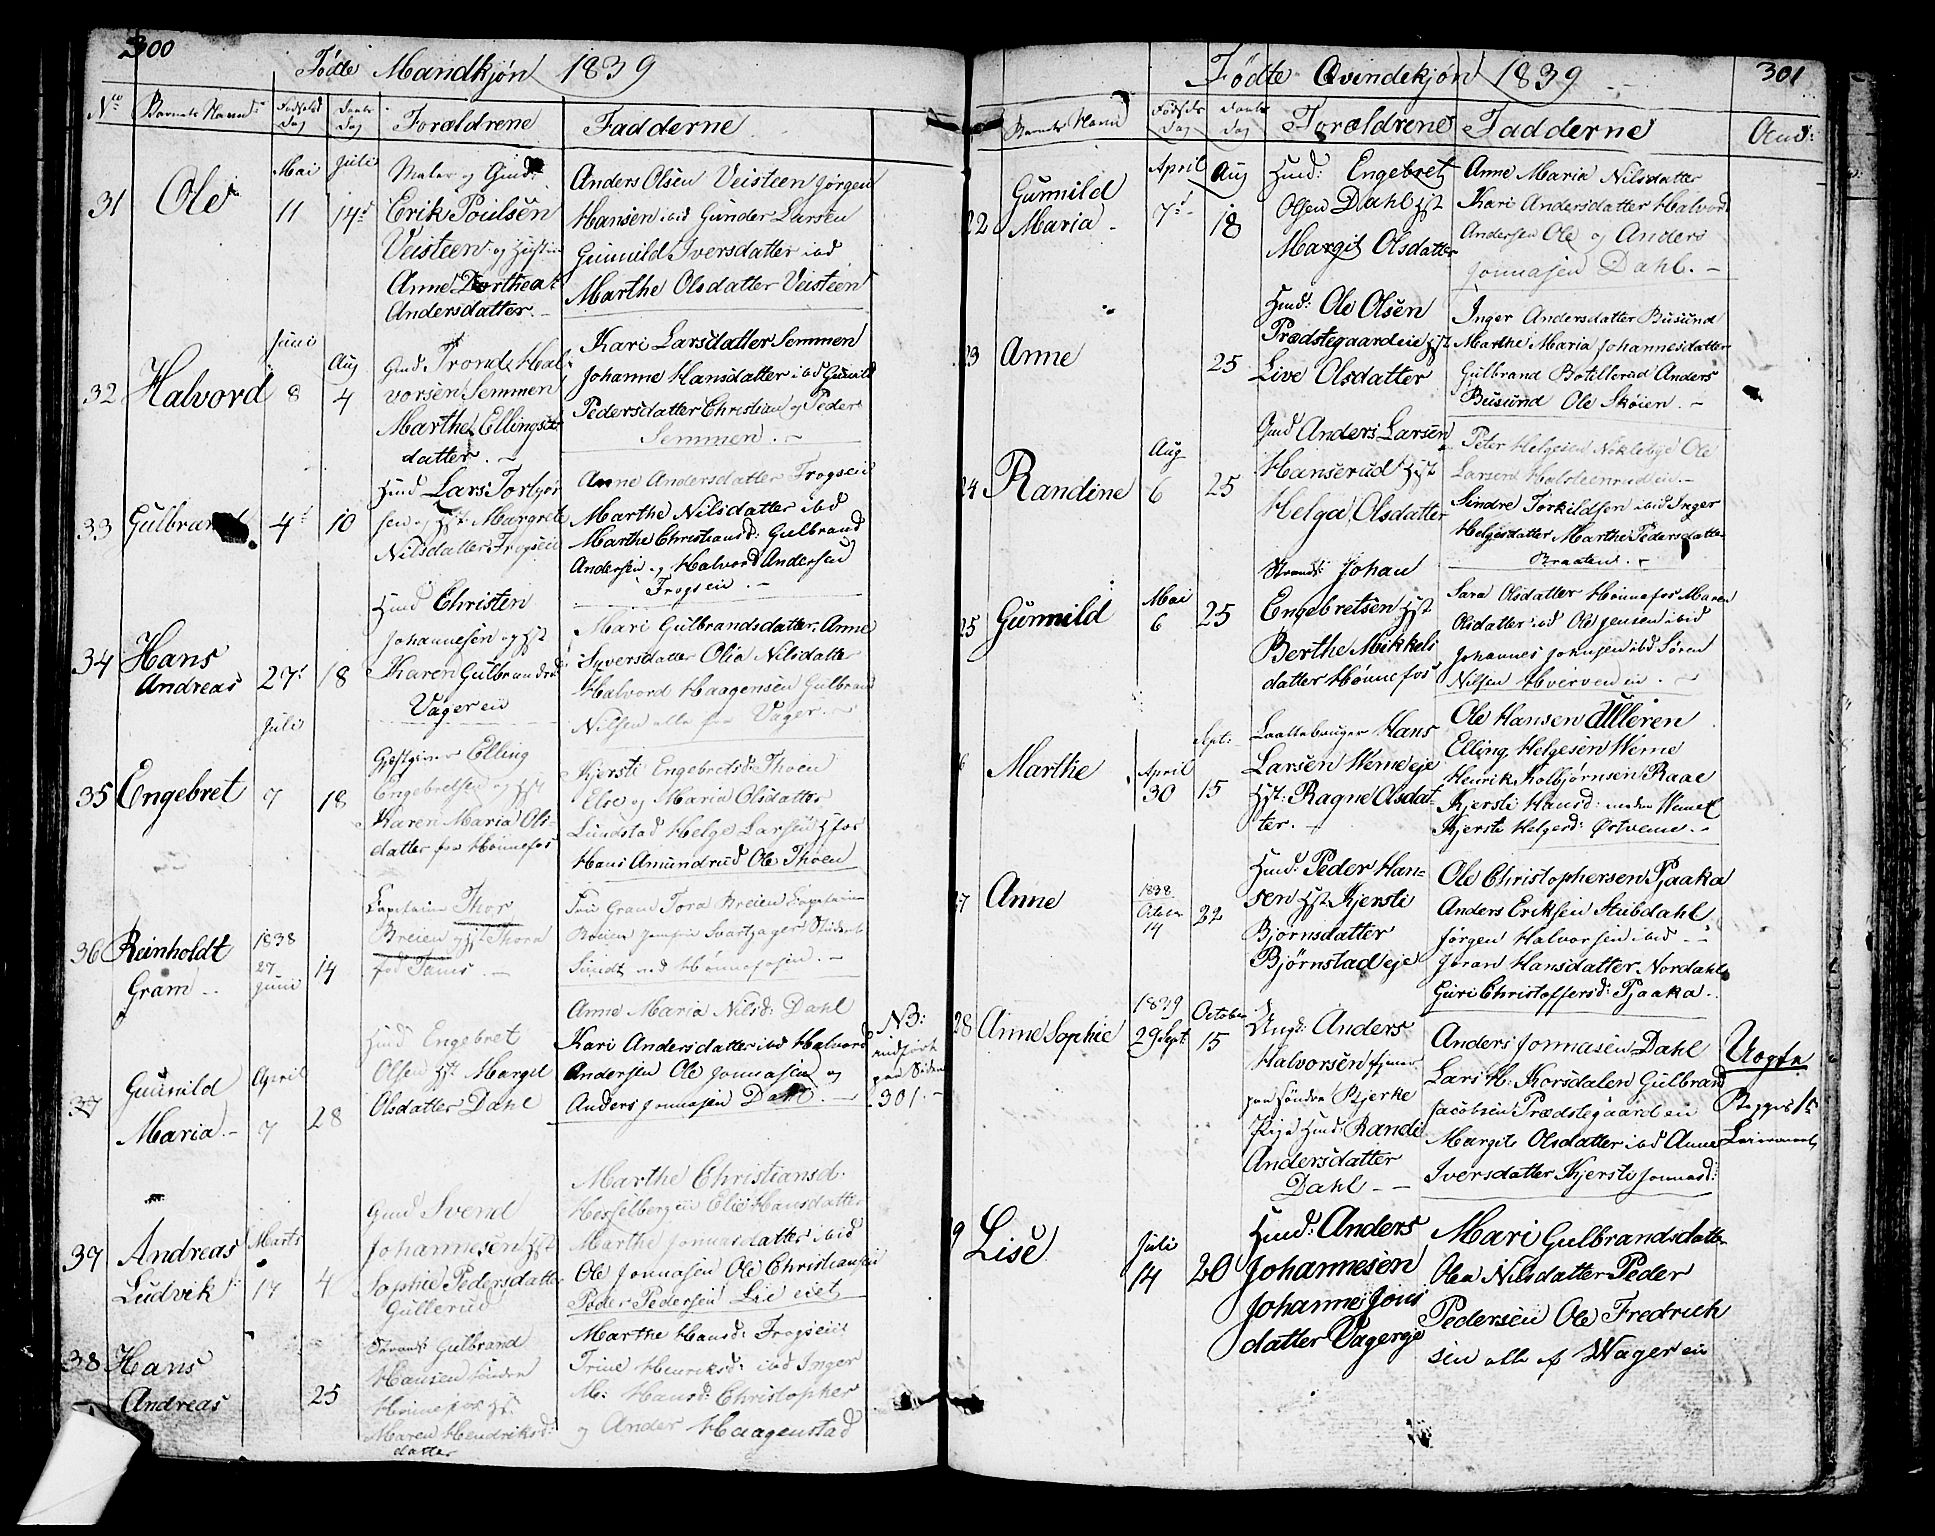 300
Födte Mandkjön 1839
No Barnets Navn: Födsels Dag Daabs Dag Forældrene Fadderne
31 Ole Mai 11 Juli 14d
Maler og Gmd:
Erik Poulsen
Veisteen og Hustru
Anne Dorthea
Andersdatter.
Anders Olsen Veisteen Jörgen
Hansen ibid Gunder Larsen
Gunnild Iversdatter ibd
Marthe Olsdatter Veisteen
32 Halvord Juni 8 Aug 4
Gmd Trond Hal-
vorsen Semmen
Marthe Ellings
datter. -
Kari Larsdatter Semmen
Johanne Hansdatter ibd Gunild
Pedersdatter Christian og Peder
Semmen. -
33 Gulbrand 4d 10
Hmd Lars Torbjör
sen og Hst Margrete
Nilsdatter Frogseie
Anne Andersdatter Frogseie
Marthe Nilsdatter ibd
Marthe Christiansd: Gulbrand
Andersen og Halvord Andersen
Frogseie. -
34 Hans
Andreas 27d 18
Hmd Christen
Johannesen og Hst
Karen Gulbrandsd:
Vager eie
Mari Gulbrandsdatter, Anne
Syversdatter Olia Nilsdatter
Halvord Haagensen Gulbrand
Nilsen alle fra Vager. -
35 Engebret Juli 7 18
Gjestgiver Elling
Engebretsen og Hst
Karen Maria Ols-
datter fra Hönnefos
Kjersti Engebretsd: Thoen
Else og Maria Olsdatter
Lundstad Helge Larsen Hfos
Hans Amundrud Ole Thoen
36 Reinholdt
Gram - 1838 27 Juni 14
Capitaine Thor
Breien og Hst Thora
föd Tams. -
Fru Gram Tora Breien Capitaine
Breien Jomfru Svartzager Student
Sundt ved Hönnefossen. -
37 Gunnild
Maria - April 7 28
Hmd Engebret
Olsen Hst: Margit
Olsdatter Dahl
Anne Maria Nilsd: Dahl
Kari Andersdatter ibd Halvord
Andersen Ole Jonnasen og
Anders Jonnasen Dahl. -
NB:
indfört
paa Siden
301. -
37 Andreas
Ludvik Marts 17 4
Gmd Svend
Johannesen Hst
Sophie Pedersdatter
Gullerud
Marthe Christiansd.
Hesselbergeie Elie Hansdatter
Marthe Jonnasdatter ibid
Ole Jonnasen Ole Christiansen
Peder Pedersen Lie eiet
38 Hans
Andreas 25
Strands: Gulbrand
Hansen Söndre
Hönnefos Hst
Maren Hendriksd:
datter
Marthe Hansd: Frogseie
Trine Henriksd: ibid Inger
M: Hansd: Christopher
og Ander Haagenstad
Födte Qvindekjön 1839
301
Barnets Navn Födsels Dag Daabs Dag Forældrene Fadderne Anm:
22 Gunnild
Maria - April 7d Aug 18
Hmd: Engebret
Olsen Dahl Hst
Margit Olsdatter
Anne Maria Nilsdatter
Kari Andersdatter Halvord
Andersen Ole og Anders
Jonnasen Dahl. -
23 Anne 25
Hmd: Ole Olsen
Prædstegaardeie Hst
Live Olsdatter
Inger Andersdatter Busund
Marthe Maria Johannesdatter
Gulbrand Botillerud Anders
Busund Ole Sköien. -
24 Randine Aug 6 25
Gmd Anders Larsen
Hanserud Hst
Helga Olsdatter
Peter Helgesen Noklebye Ole
Larsen Halsteenrudeie -
Sindre Torkildsen ibid Inger
Helgesdatter Marthe Pedersdatter
Braaten. -
25 Gunnild Mai 6 25
Strands: Johan
Engebretsen Hst
Berthe Mikkels
datter Hönnefos
Sara Olsdatter Hönnefos Maren
Olsdatter ibd Ole Jensen ibid
Johannes Johnsen ibd Sören
Nilsen Hverven eie. -
6 Marthe April 30 Sept: 15
Laattebruger Hans
Larsen Werne eje
Hst: Ragne Olsdat-
ter. -
Ole Hansen Ulleren
Elling Helgesen Werne
Henrik Kolbjörnsen Raae
Kjersti Hansd: nedre Werne
Kjersti Helgesd: Östverne -
7 Anne 1838 October 14 22
Hmd: Peder Han-
sen Hst Kjersti
Björnsdatter
Björnstad eje
Ole Christophersen Pjaaka
Anders Eriksen Stubdahl
Jörgen Halvorsen ibid - -
Jöran Hansdatter Nordahl
Guri Christoffersd: Pjaaka -
28 Anne Sophie 1839 29 Sept October 15
Ungk: Anders
Halvorsen tjener
paa söndre Bjerke
Pige Hmd: Randi
Andersdatter
Dahl - -
Anders Jonnasen Dahl
Lars H: Korsdalen Gulbrand
Jacobsen Prædstegaard eie
Margite Olsdatter ibd Anne
Iversdatter Kjersti Jonnasd:
Uogte
Begges 1ste
Leiermaal
9 Lise Juli 14 20
Hmd: Anders
Johannesen
Johanne Jons
datter Vagereje
Mari Gulbrandsdatter
Olea Nilsdatter Peder
Pedersen Ole Fredrich
sen alle af Wager eie